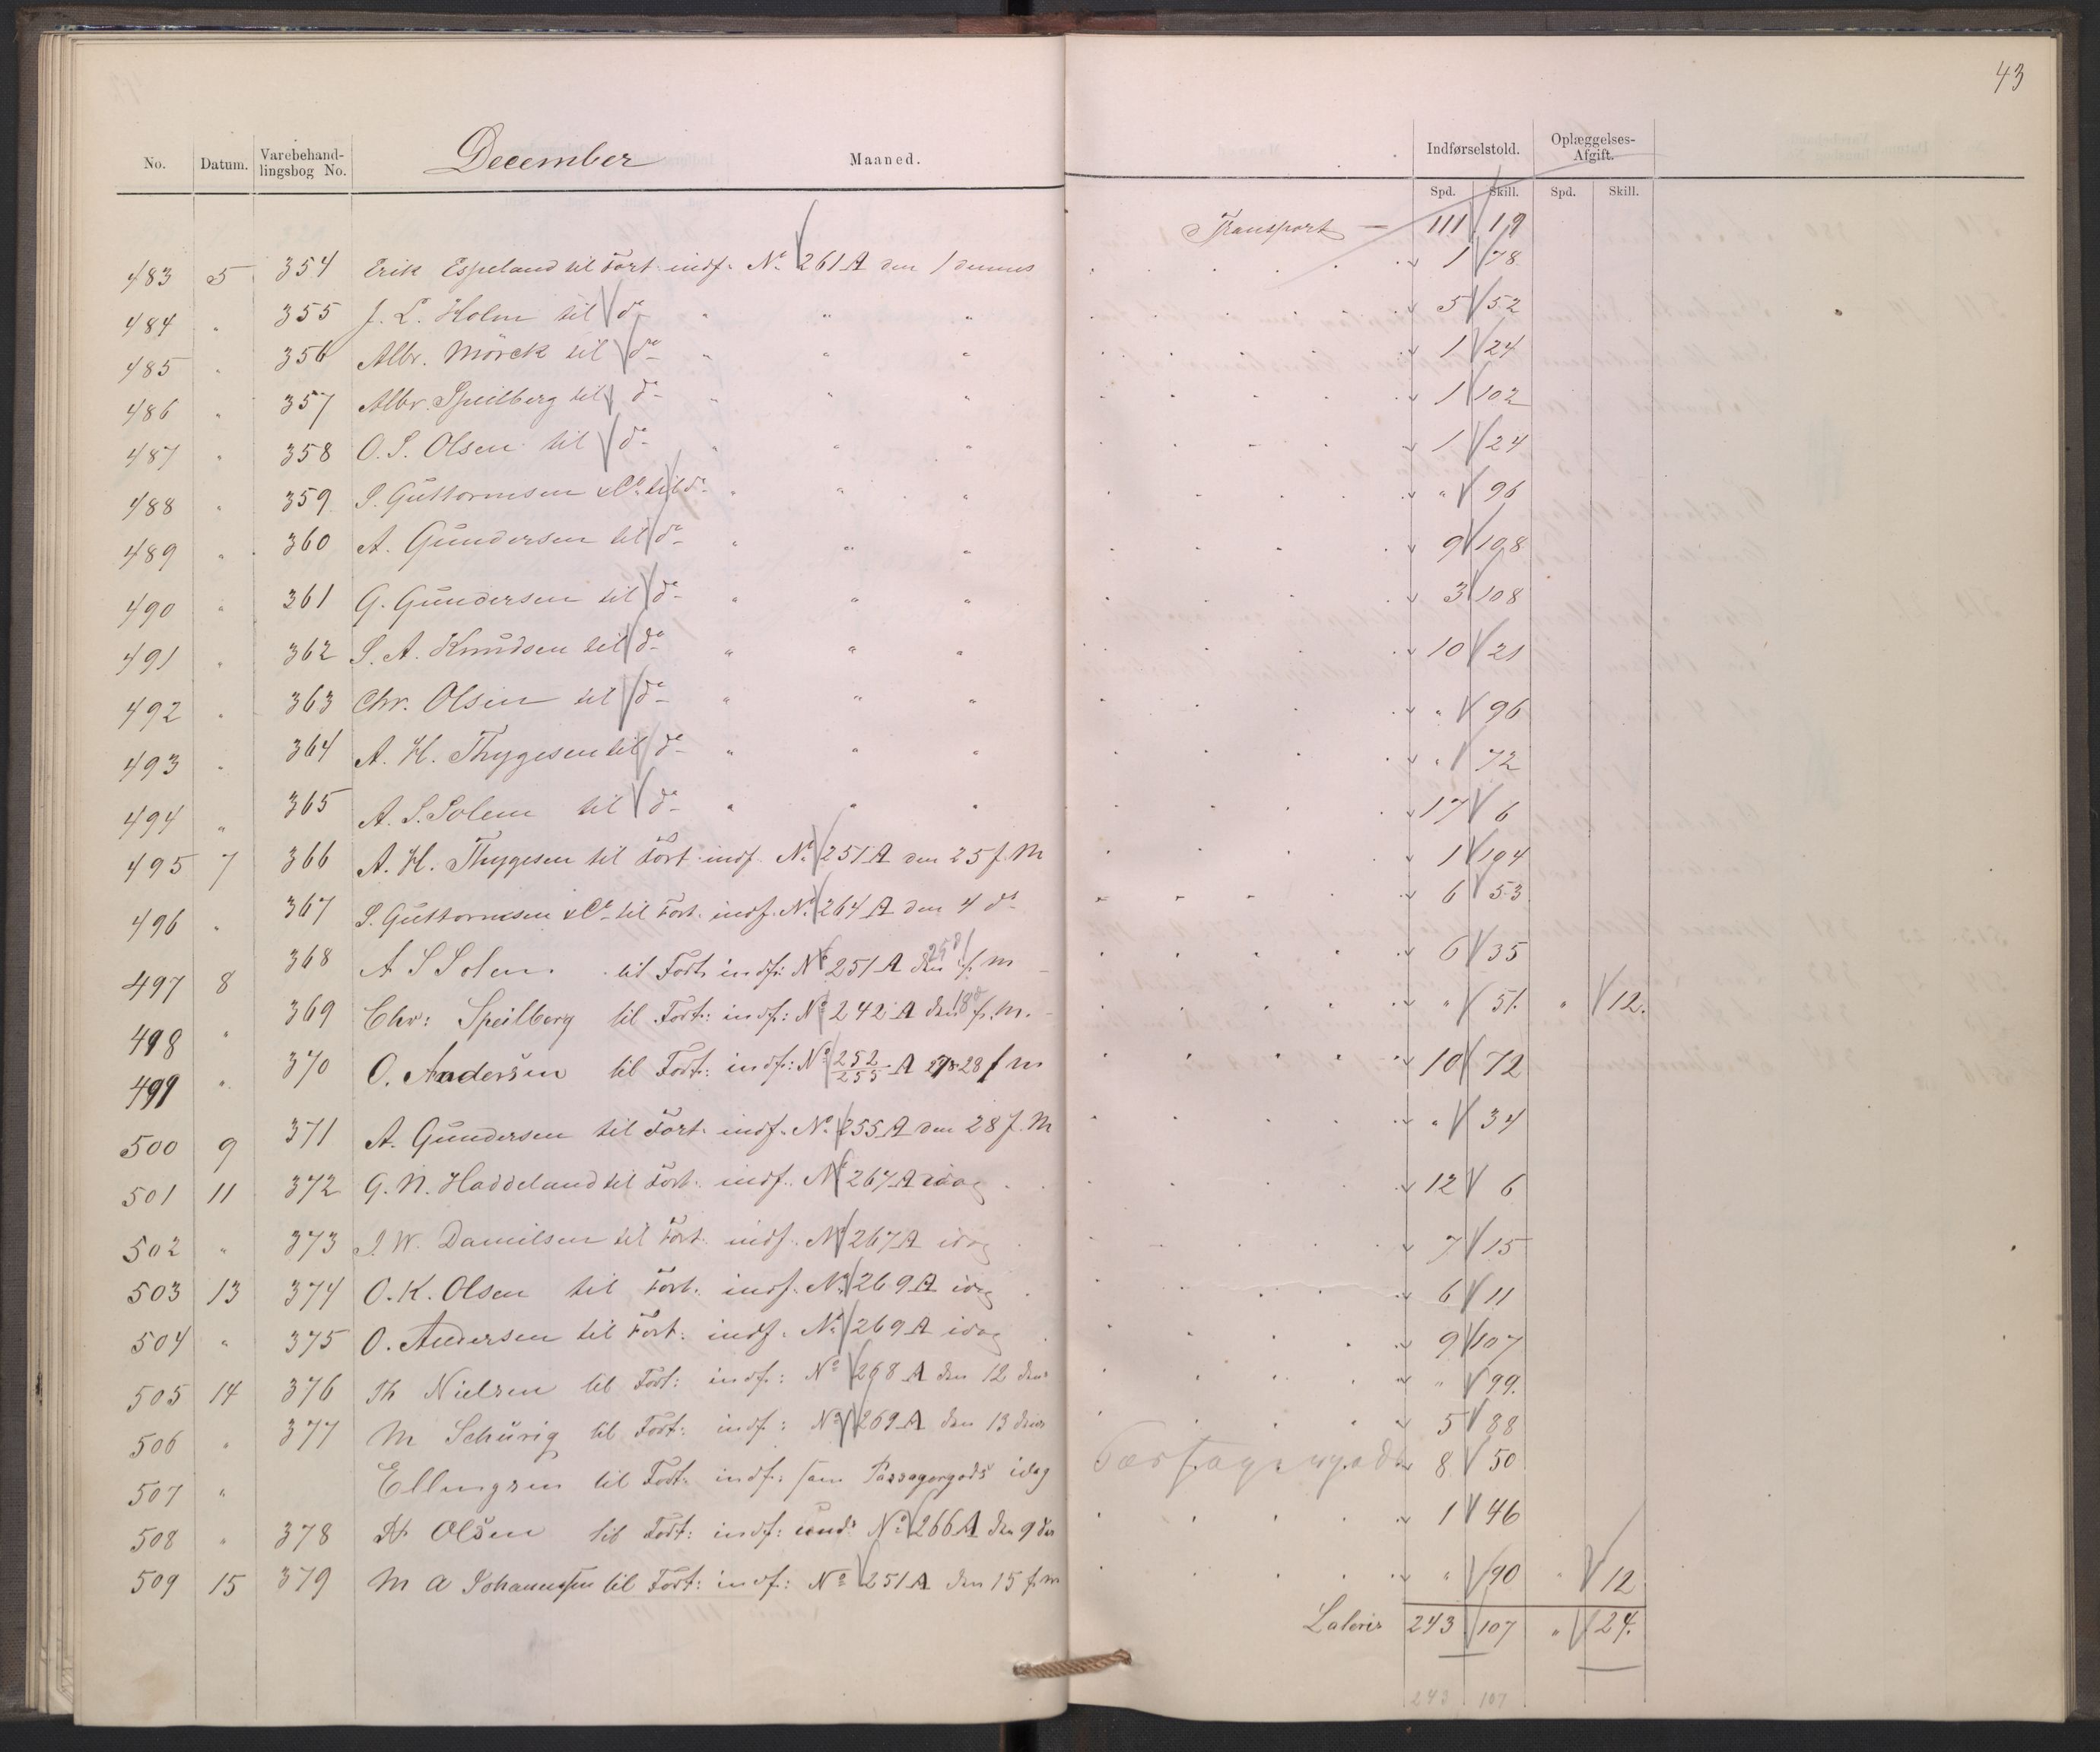 43
No. Datum. Varebehand-lingsbog No. December Maaned. Indførselstold. Oplæggelses-Afgift.
Spd. Skill. Spd. Skill.
Transport — 111 19
483 5 354 Erik Espeland til Fort. indf. No 261 A den 1 dennes 1 78
484 " 355 J. L. Holm til do " " " 5 52
485 " 356 Albr. Mörck til do " " " 1 24
486 " 357 Albr. Speilberg til do " " " 1 102
487 " 358 O. S. Olsen til do " " " 1 24
488 " 359 S. Guttormsen & Co. til do " " " " 96
489 " 360 A. Gundersen til do " " " 9 108
490 " 361 G. Gundersen til do " " " 3 108
491 " 362 S. A. Knudsen til do " " " 10 21
492 " 363 Chr. Olsen til do " " " " 96
493 " 364 A. H. Thygesen til do " " " " 72
494 " 365 A. S. Solem til do " " " 17 6
495 7 366 A. H. Thygesen til Fort. indf. No 251 A den 25 f. M 1 104
496 " 367 S. Guttormsen & Co. til Fort. indf. No 264 A den 4 ds 6 53
497 8 368 A S Solem til Fort. indf: No 251 A den 25 f. m 6 35
498 " 369 Chr: Speilberg til Fort: indf: No 242 A den 18 f. m. " 51. " 12.
499 " 370 O. Andersen til Fort: indf: No 252/255 A 28 f m 10 72
500 9 371 A. Gundersen til Fort. indf. No 255 A den 28 f. M " 34
501 11 372 G. N. Haddeland til Fort. indf. No 267 A idag 12 6
502 " 373 W. Danielsen til Fort. indf. No 267 A idag 7 15
503 13 374 O. K. Olsen til Fort. indf. No 269 A idag 6 11
504 " 375 O. Andersen til Fort. indf. No 269 A idag 9 107
505 14 376 Th Nielsen til Fort: indf: No 268 A den 12 dens " 99.
506 " 377 M Schürig til Fort: indf: No 269 A den 13 dens 5 88
507 " Ellingsen til Fort. indf: som Passagergods idag 8 50
508 " 378 Olsen til Fort: indf: No 266 A den 9 ds 1 46
509 15 379 M A Johannssen til Fort: indf: No 251 A den 15 f. m " 90 " 12
Lateris 243 107 " 24.
243 107